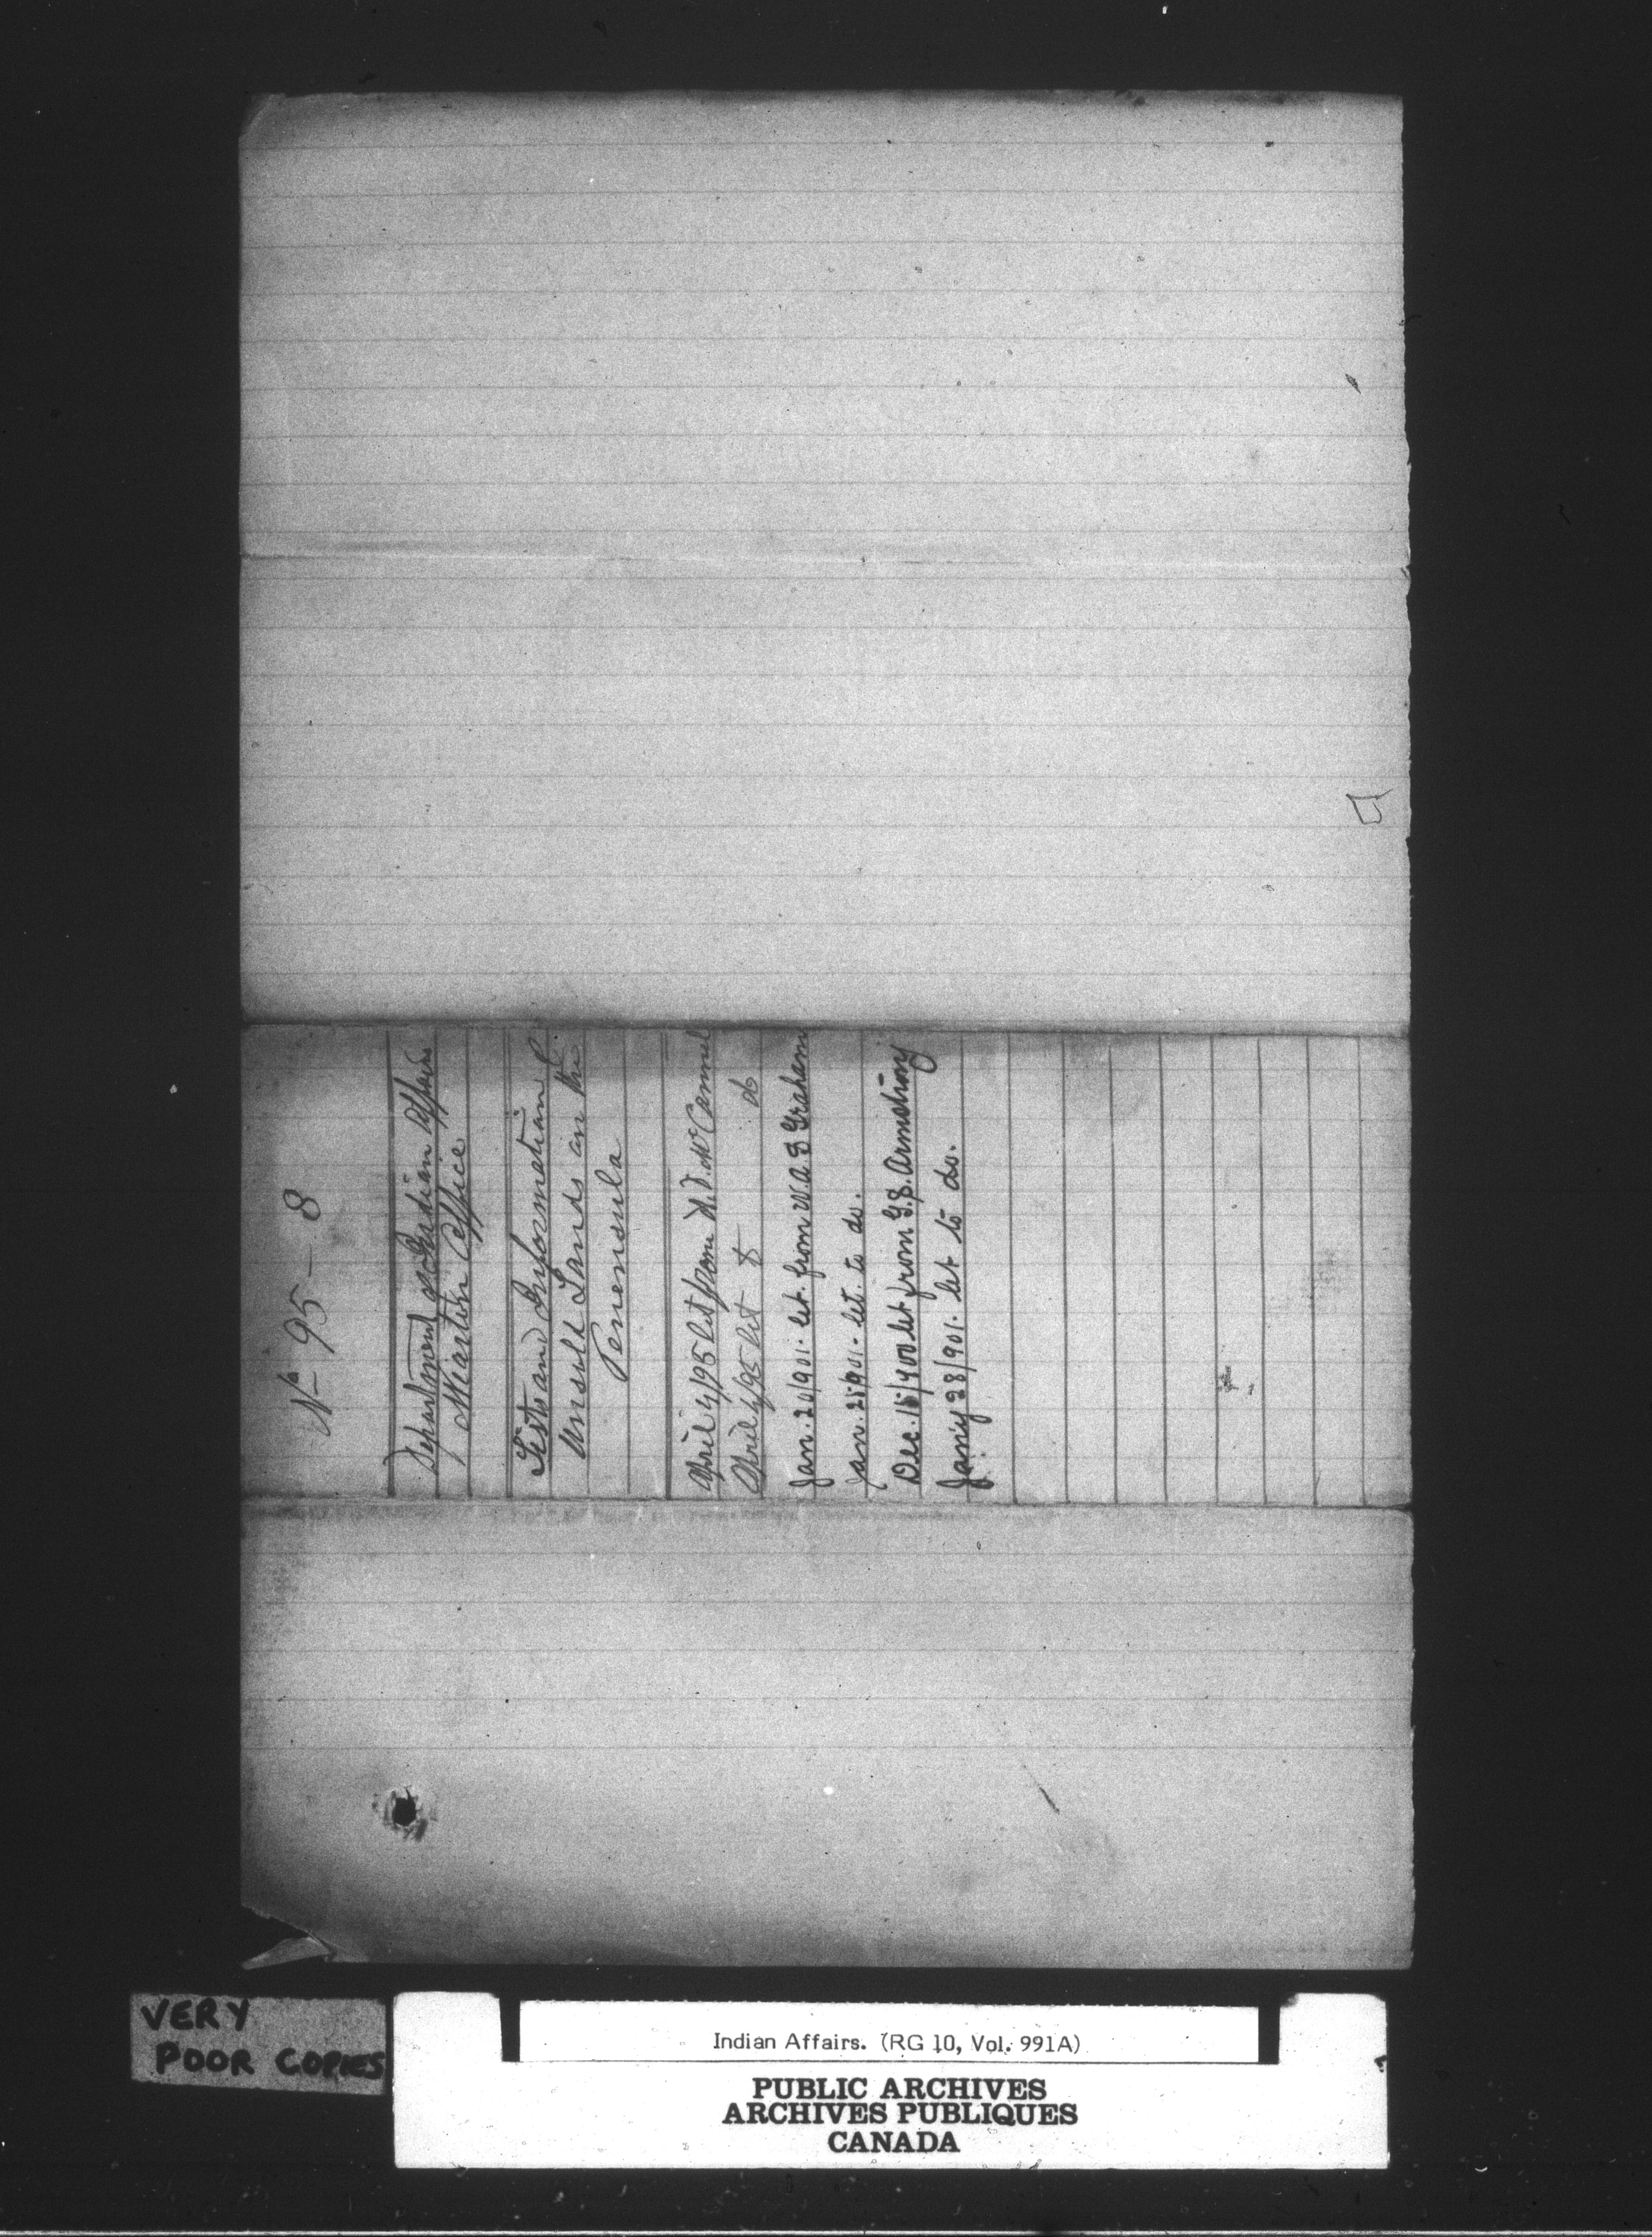 No 95 - 8
Department of Indian Affairs
Wiarton Office
Lists and Information of
Unsold Lands on the
Peninsula
April 4/95 let from
April 4/95 let to do
Jan. 20/901. let. from W. A. Graham
Jan. 25/901. let. to do.
Dec. 15/900 let from G. S. Armstrong
Jan'y 28/901. let to do.
VERY
POOR COPIES
Indian Affairs. (RG 10, Vol. 991A)
PUBLIC ARCHIVES
ARCHIVES PUBLIQUES
CANADA